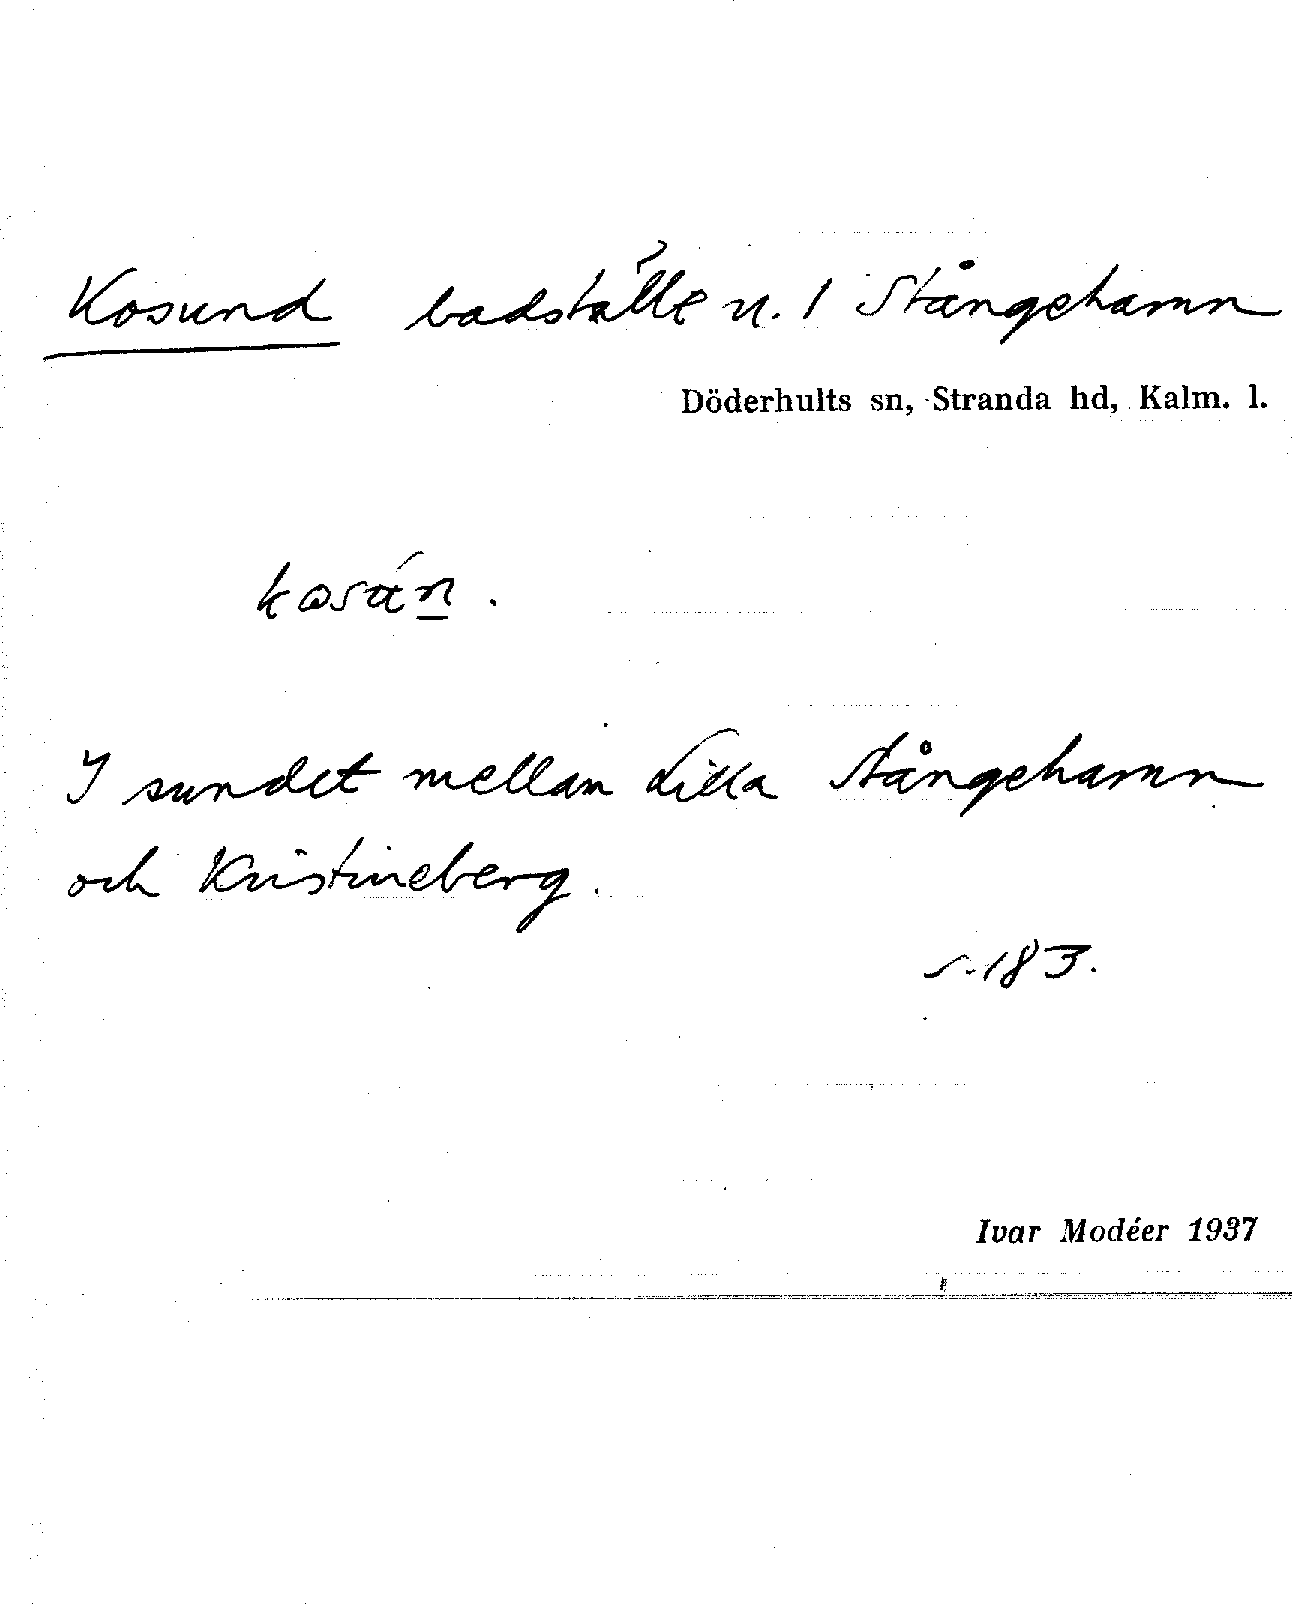 Kosund badställe u. 1 Stångehamn
Döderhults sn, Stranda hd, Kalm. l.
I sundet mellan Lilla Stångehamn
och Kristineberg.
s. 183.
Ivar Modéer 1937